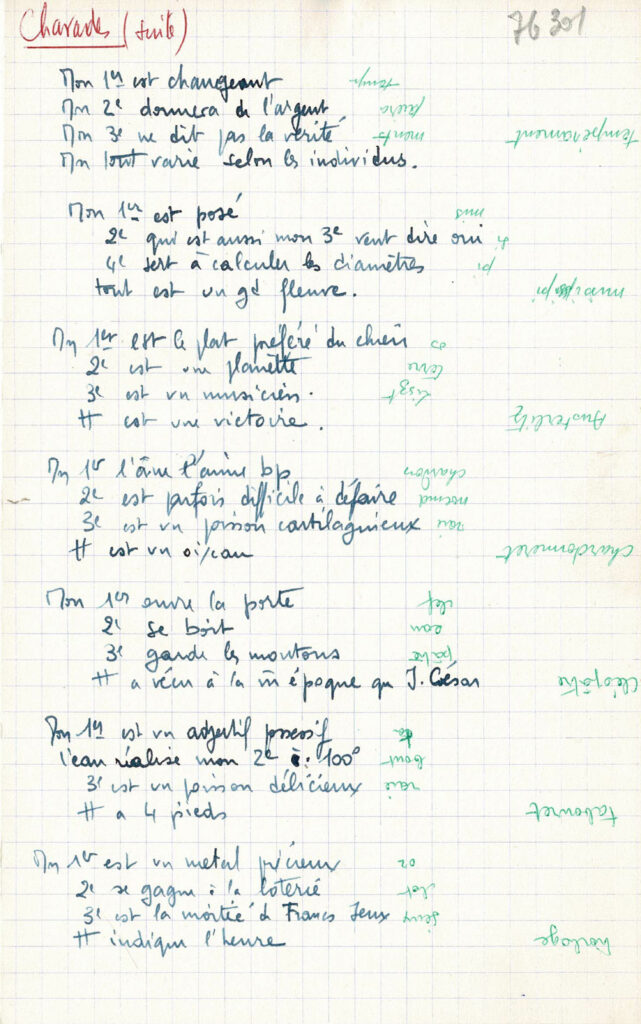 Charades (suite)
76 301
Mon 1er est changeant temps
Mon 2e donnera de l'argent paiera
Mon 3e ne dit pas la vérité ments
Mon tout varie selon les individus. tempérament
Mon 1er est posé mis
2e qui est aussi mon 3e veut dire oui si
4e sert à calculer les diamètres pi
tout est un gd fleuve. mississipi
Mon 1er est le plat préféré du chien os
2e est une planette terre
3e est un musicien. Liszt
tt est une victoire. Austerlitz
Mn 1er l'âne l'aime bp chardon
2e est parfois difficile à défaire noeud
3e est un poisson cartilagnieux raie
tt est un oiseau chardonneret
Mon 1er ouvre la porte clef
2e se boit eau
3e garde les moutons pâtre
tt a vécu à la m̄ époque qu J. César Cléopâtre
Mon 1er est un adjectif possessif ta
l'eau réalise mon 2e à 100° bout
3e est un poisson délicieux raie
tt a 4 pieds tabouret
Mn 1er est un metal précieux or
2e se gagne à la loterie lot
3e est la moitié d Francs Jeux jeux
tt indique l'heure horloge